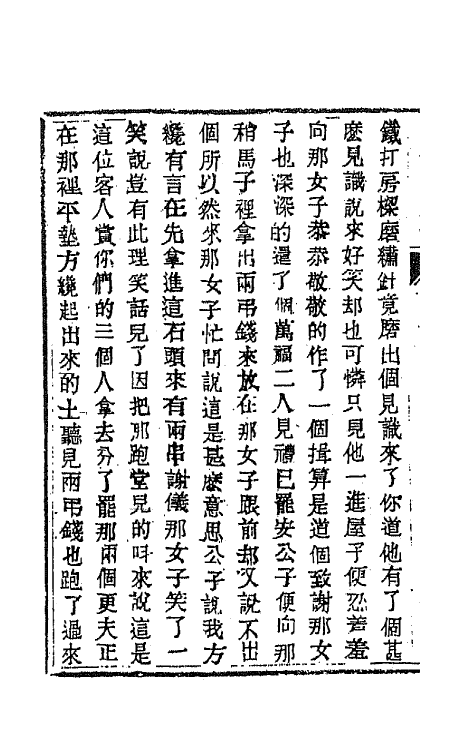 鐵打房樑磨繡針竟磨出個見識來了你道他有了個甚
麽見識說來好笑却也可憐只見他一進屋子便忍着羞
向那女子恭恭敬敬的作了一個揖算是道個致謝那女
子也深深的還了個萬福二人見禮已罷安公子便向那
稍馬子裡拿出兩弔錢來放在那女子跟前却又說不出
個所以然來那女子忙問說這是甚麽意思公子說我方
纔有言在先拿進這石頭來有兩串謝儀那女子笑了一
笑說豈有此理笑話兒了因把那跑堂兒的呌來說這是
這位客人賞你們的三個人拿去分了罷那兩個更夫正
在那裡平墊方纔起出來的土聽見兩弔錢也跑了過來